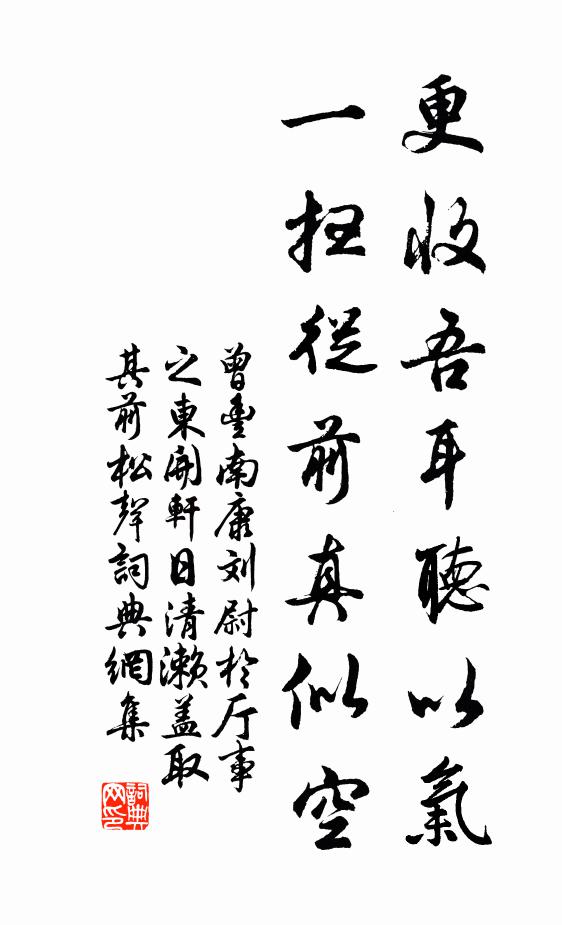 更收吾耳聽以氣
一掃從前真似空
曾豐南康刘尉於厅事
之東開軒日清瀨蓋取
其前松聲詞典網集
詞典
网印